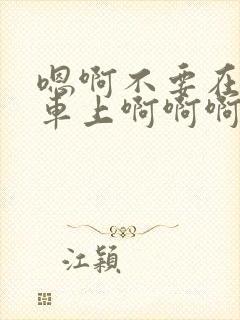 嗯啊不要在
車上啊啊啊
江穎